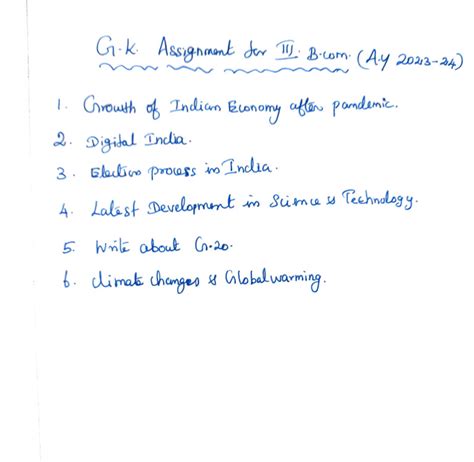 G.K. Assignment for III. B.com. (A.Y 2023-24)
1. Growth of Indian Economy after pandemic.
2. Digital India.
3. Election process in India.
4. Latest Development in Science & Technology.
5. Write about G.20.
6. climate changes & Global warming.